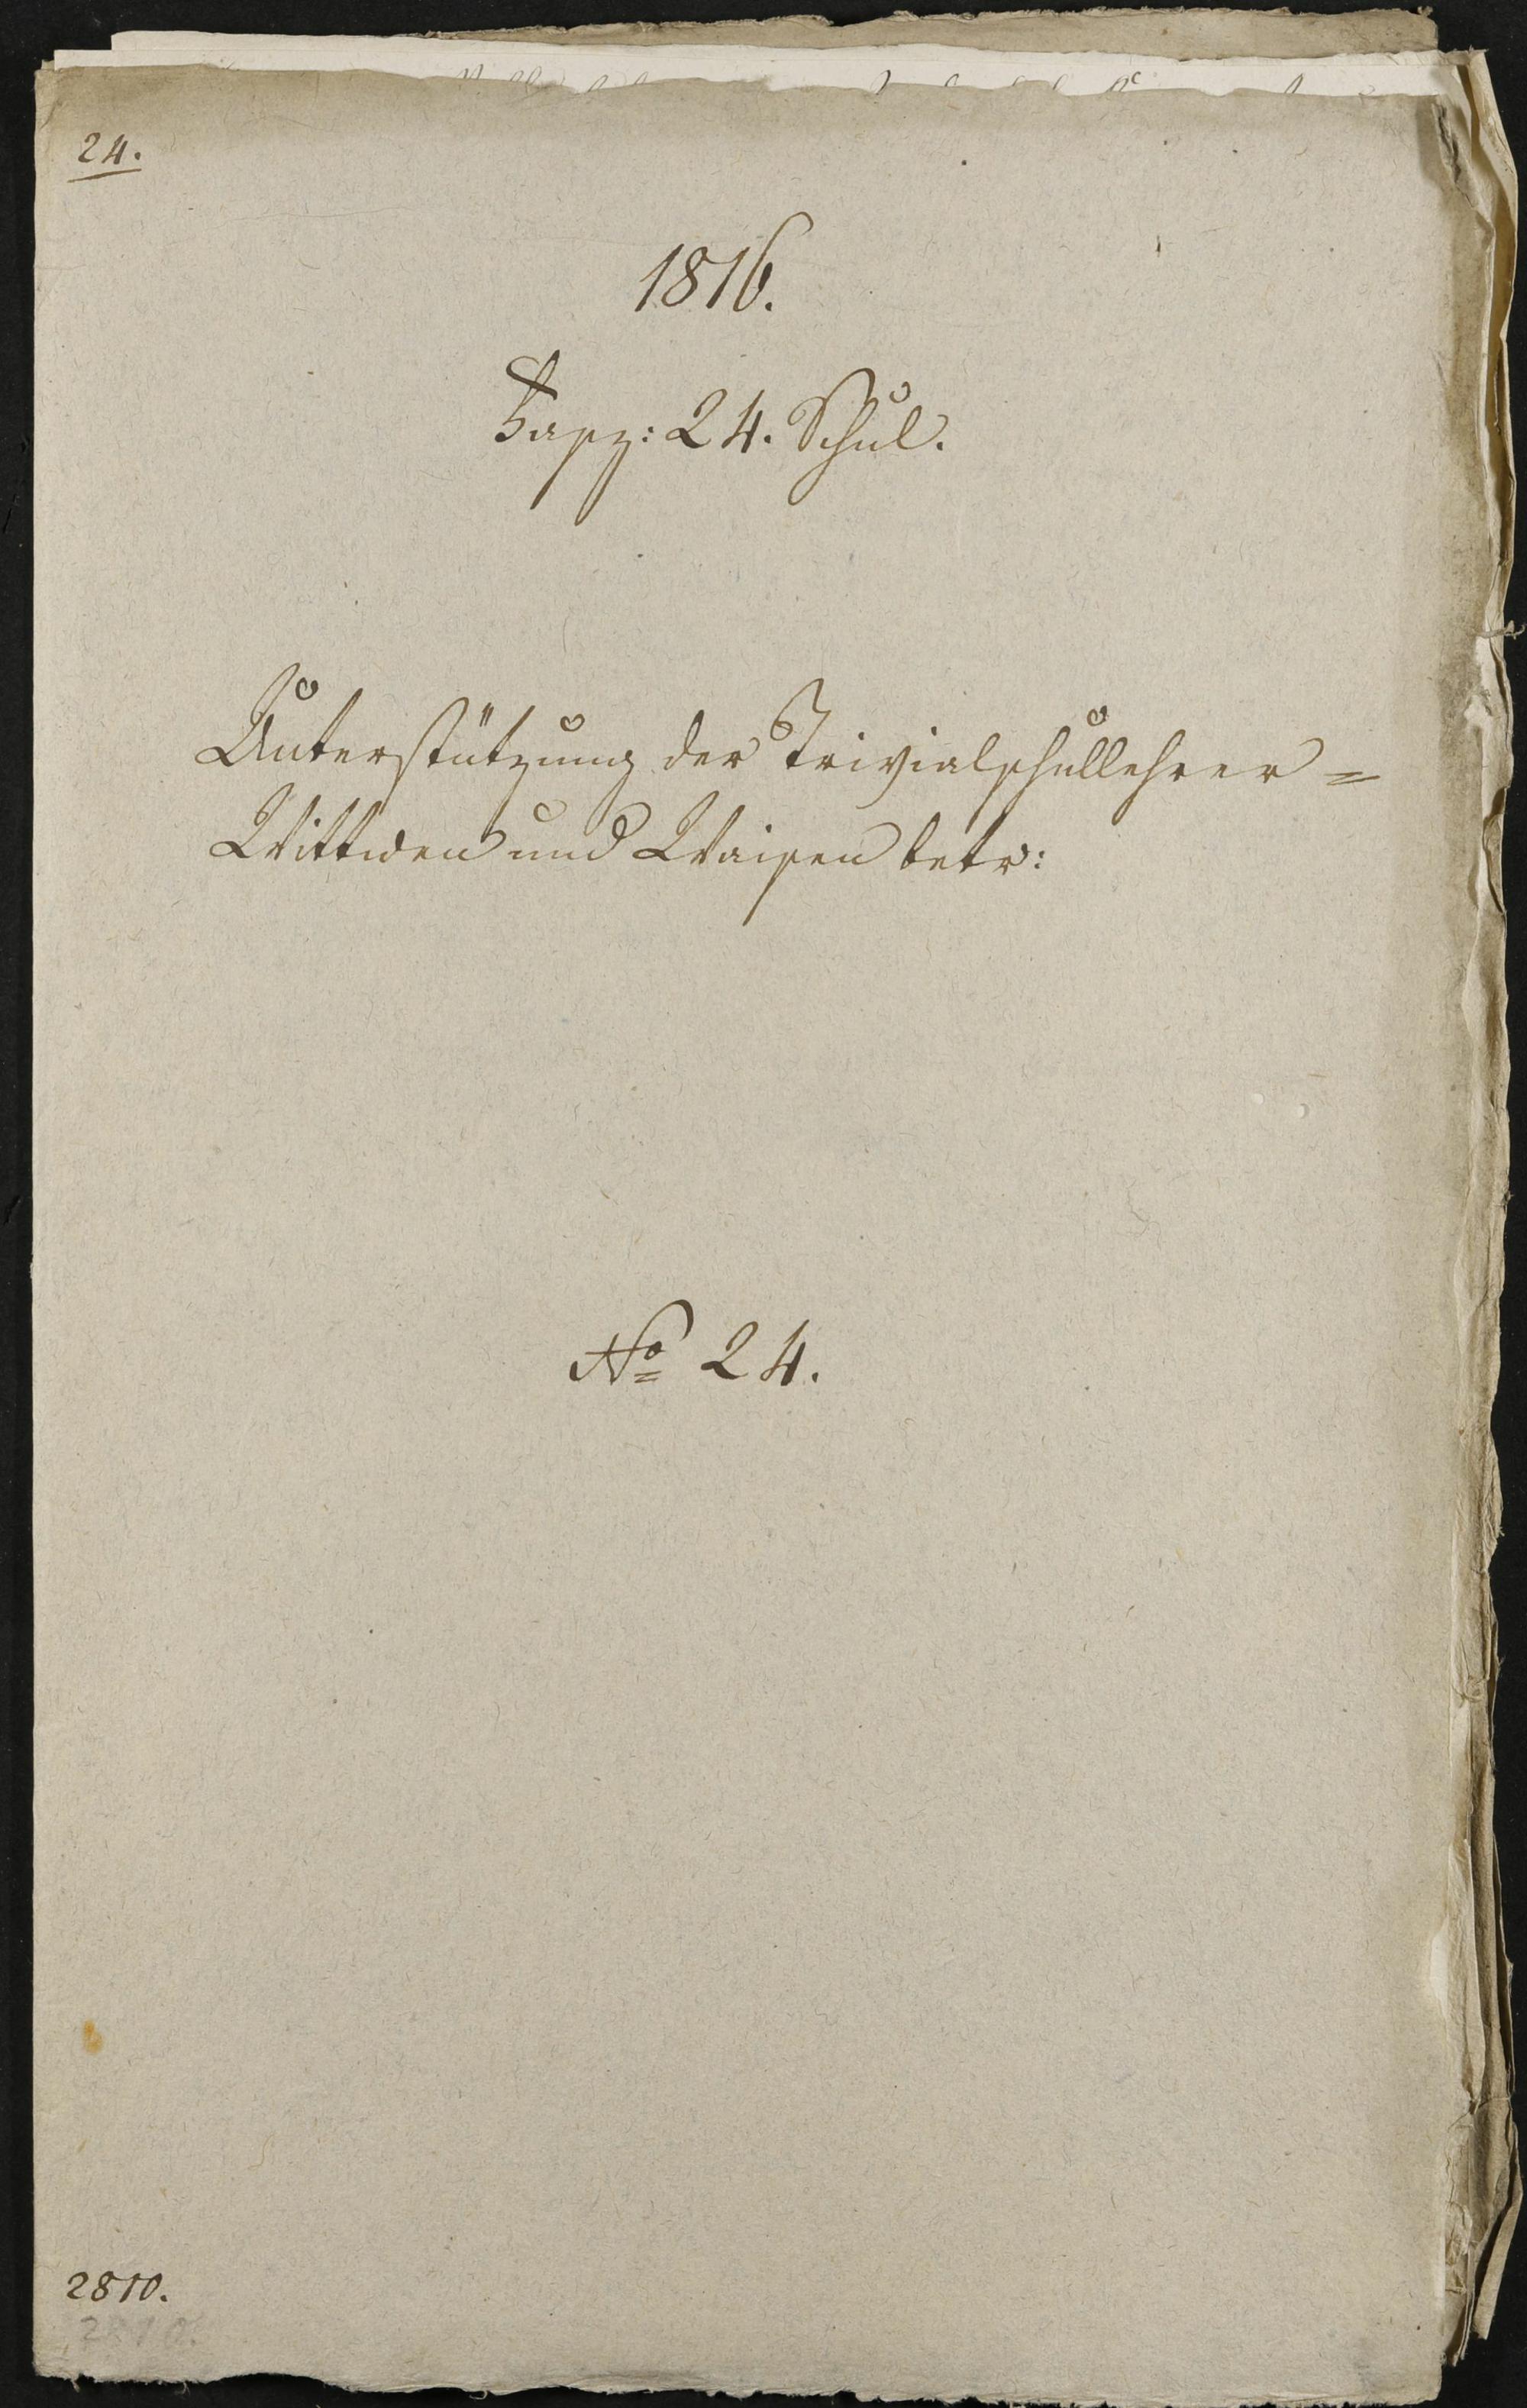 24.
1816.
Fasz: 24. Schul.
Unterstützung der Trivialschullehrer=
Wittwen und Waisen betr:
No 24.
2810.
2810.